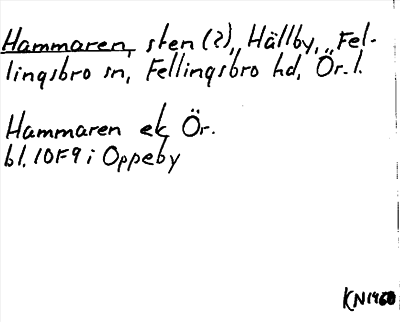 Hammaren, sten (?), Hällby, Fel-
lingsbro sn, Fellingsbro hd, Ör. l.
Hammaren ek Ör.
bl. 10F9 i Oppeby
KN1960